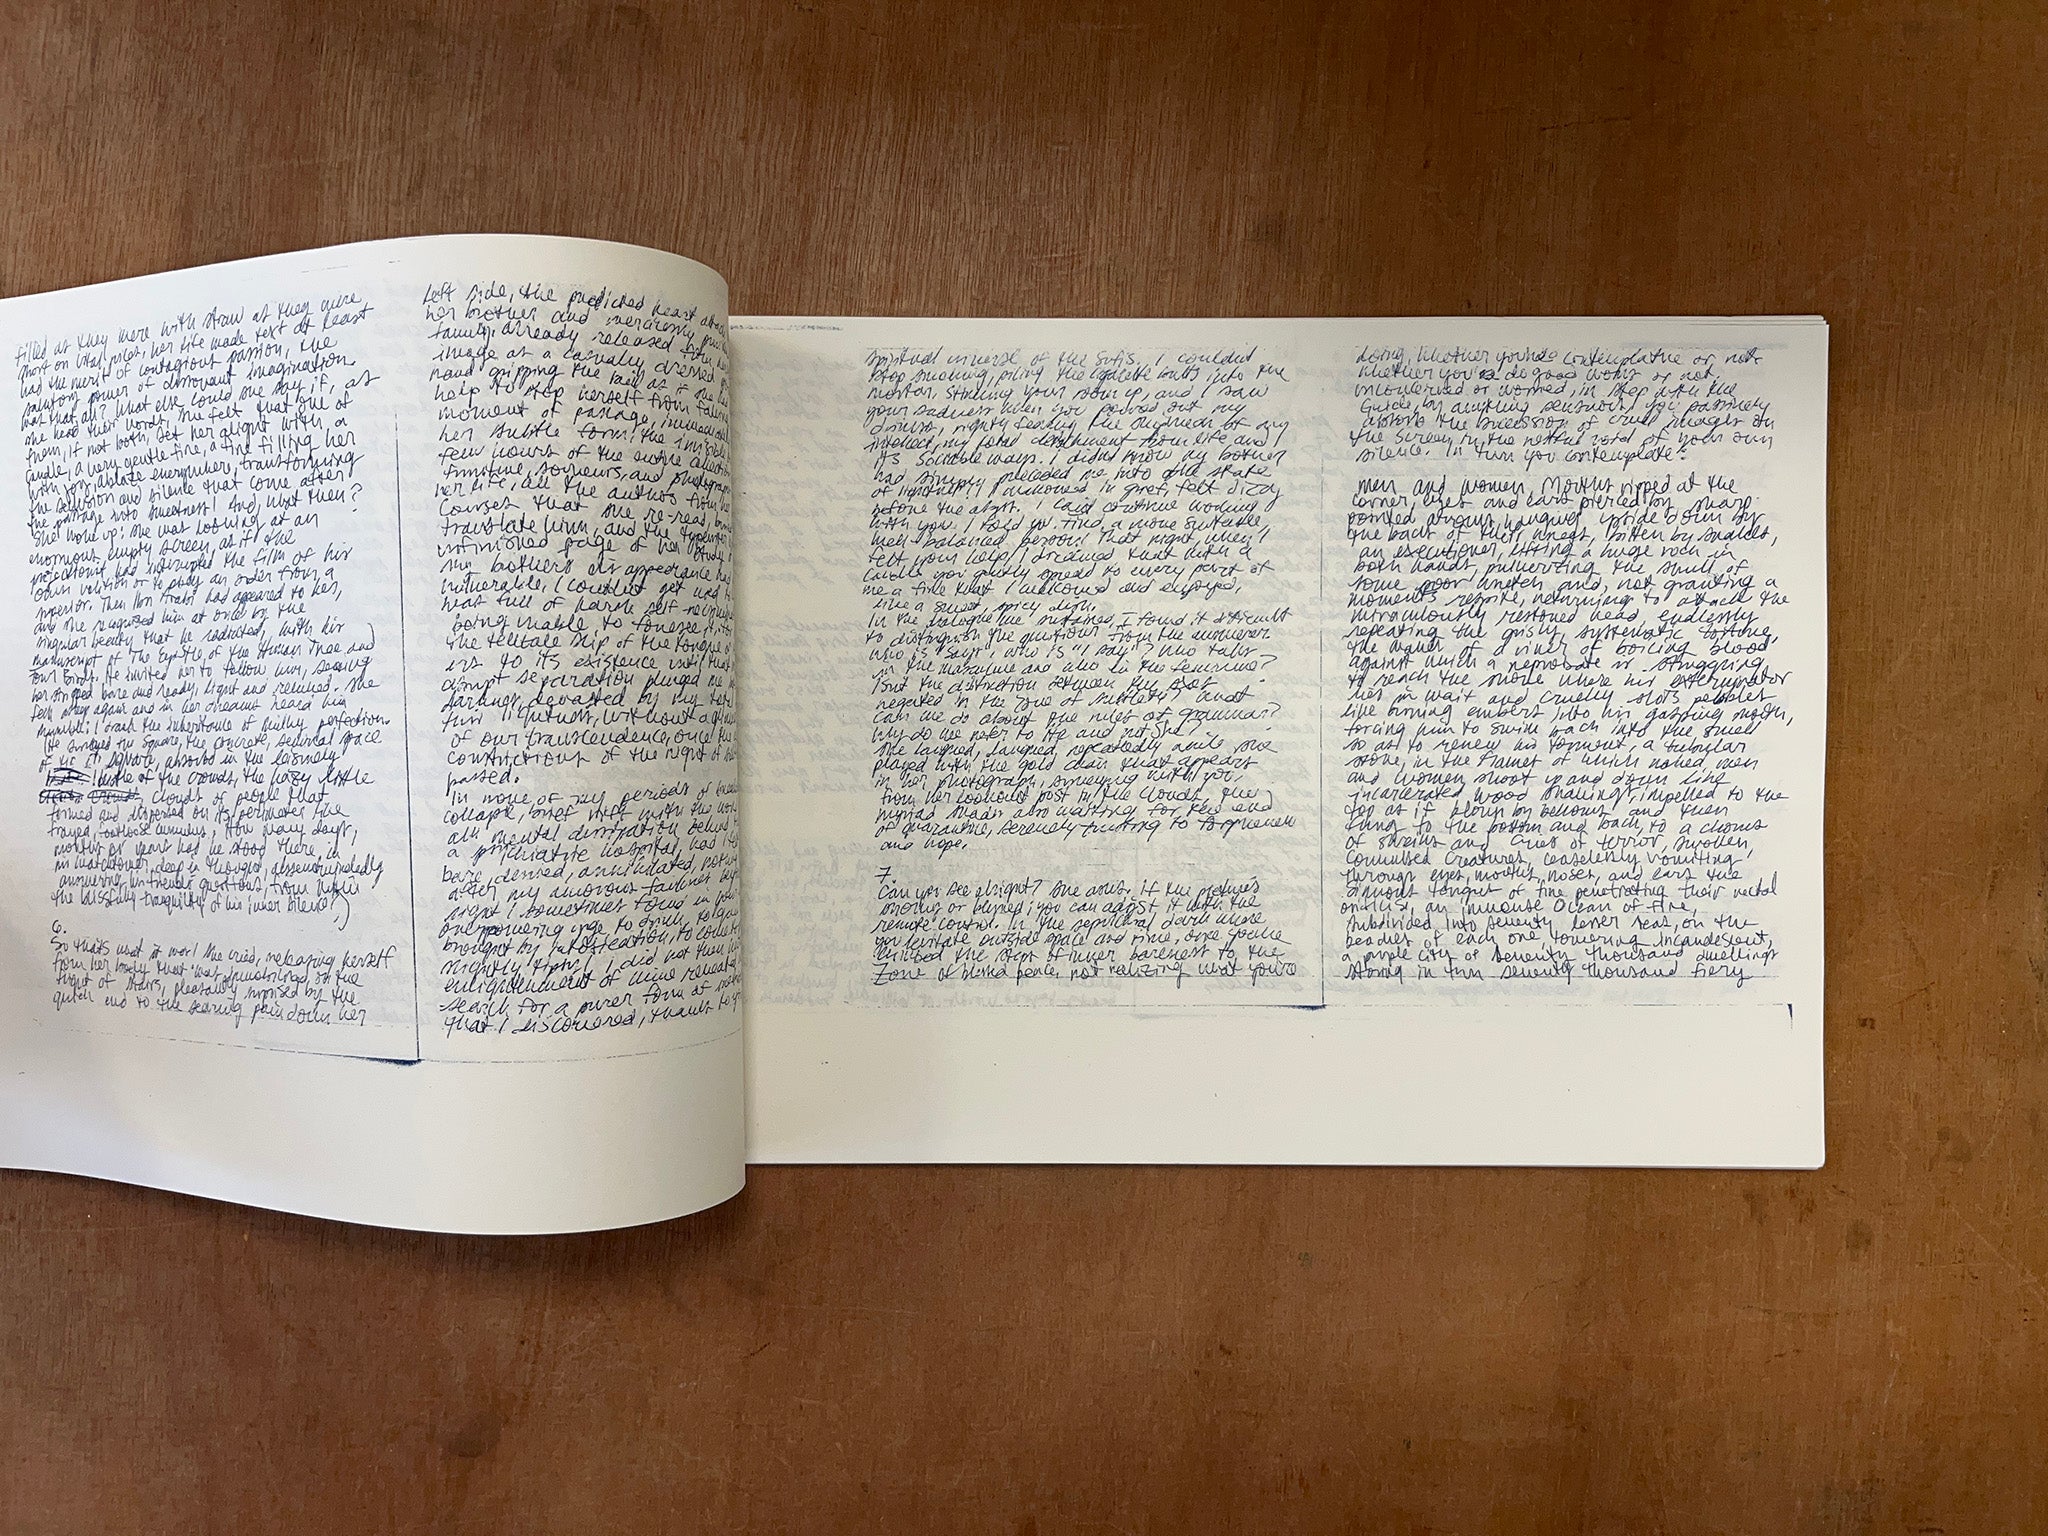 filled as they were with straw as they were
short on vital juices, her life made text at least
had the merit of contagious passion, the
salutary power of dissonant imagination.
was that all? What else could she say if, as
she read their words, she felt that one of
them, if not both, set her alight with a
candle, a very gentle fire, a fire filling her
with joy, ablaze everywhere, transforming
the seclusion and silence that come after
the passage into sweetness! And, what then?
She woke up: she was looking at an
enormous empty screen, as if the
projectionist had interrupted the film of his
own volition or to obey an order from a
superior. Then Ibn Arabi had appeared to her,
and she recognised him at once by the
singular beauty that he radiated, with his
manuscript of The Epistle of the Human Tree and
Four Birds. He invited her to follow him, seeing
her stripped bare and ready, light and refined. She
fell asleep again and in her dreams heard him
mumble: I crave the inheritance of guilty perfection.
(He surveyed the square, the concrete, sensual space
of the square, absorbed in the leisurely
of the crowds, the hazy little
clouds of people that
formed and dispersed on its perimeter like
frayed, footloose cumulus. How many days,
months or years had he stood there in
his watchtower, deep in thought,
answering his friends' questions, from within
the blissful tranquility of his inner silence?)
6.
So that's what it was! she cried, releasing herself
from her body that was immobilized on the
flight of stairs, pleasantly surprised by the
quick end to the searing pain down her
left side, the predicted heart
her brother and
family, already released from her
image as a casually dressed
hand gripping the rail as if she
help to stop herself from falling
moment of passage,
her subtle form: the
few hours of the entire
furniture, souvenirs, and
her life, all the authors from her
courses that she re-read,
translate him, and the typewriter
unfinished page of her study
his brothers his appearance had
vulnerable. I couldn't get used to
was full of harsh self-
being unable to foresee it,
the telltale slip of the tongue
its existence until that
abrupt separation plunged me
darkness, devastated by my
first lightness, without
of our transcendence, once the
constrictions of the night of
passed.
In none of my periods of
collapse, brief with the world
all mental dissipation behind
a psychiatric hospital, had I
bare, denied, annihilated,
after my amorous failures
night I sometimes found in your
overpowering urge to drink, to
brought by intoxication, to come to
nightly trips! I did not then
enlightenment of wine revealed
search for a purer form of
that I discovered, thanks to
spiritual universe of the Sufis. I couldn't
stop smoking, piling the cigarette butts into the
mortar, stirring your soup up, and I saw
your sadness when you poured out my
drinks, rightly fearing the of my
intellect, my total detachment from life and
its sociable ways. I didn't know my brother
had simply preceded me into the state
of lightness! I wallowed in grief, felt dizzy
before the abyss. I can't continue working
with you, I told you. Find a more suitable,
well-balanced person! That night, when I
felt your help, I dreamed that with a
candle you gently spread to every part of
me a fire that I welcomed and enjoyed,
like a sweet, spicy dish.
In the dialogue we sustained, I found it difficult
to distinguish the questioner from the answerer.
Who is "says", who is "I say"? Who talks
in the masculine and who in the feminine?
Isn't the distinction between the sexes
negated in the zone of subtlety? What
can we do about the rules of grammar?
Why do we refer to He and not She?
She laughed, laughed, repeatedly while she
played with the gold chain that appears
in her photograph, surveying with you,
from her lookout post in the clouds, the
myriad shades also waiting for the end
of quarantine, serenely trusting to forgiveness
and hope.
7.
Can you see alright? she asks. If the picture's
snowing or blurred, you can adjust it with the
remote control. In the sepulchral dark where
you levitate outside space and time, once you've
climbed the steps of inner bareness to the
zone of blissed peace, not realizing what you're
doing, whether you're contemplative or not,
whether you're do good works or not,
unconcerned or worried, in step with the
Guide, by anything sensuous, you passively
absorb the succession of cruel images on
the screen in the neutral void of your own
silence. In turn you contemplate:
men and women, mouths ripped at the
corner, eyes and ears pierced by sharp
pointed arrows, hanging upside down by
the backs of their knees, bitten by snakes,
an executioner, lifting a huge rock in
both hands, pulverizing the skull of
some poor wretch and, not granting a
moments respite, returning to attack the
miraculously restored head, endlessly
repeating the grisly, systematic torture,
the water of a river of boiling blood
against which a reprobate is struggling
to reach the shore where his exterminator
lies in wait and cruelly slots pebbles
like burning embers into his gasping mouth,
forcing him to swim back into the swell
so as to renew his torment, a tubular
stove, in the flames of which naked men
and women shoot up and down like
incarcerated wood shavings, impelled to the
top as if blown by bellows and then
flung to the bottom and back, to a chorus
of shrieks and cries of terror, swollen,
convulsed creatures, ceaselessly vomiting
through eyes, mouths, noses, and ears the
sinuous tongues of fire penetrating their rectal
orifices, an immense Ocean of Fire,
subdivided into seventy lesser seas, on the
beaches of each one towering, incandescent,
a purple city of seventy thousand dwellings
storing in turn seventy thousand fiery